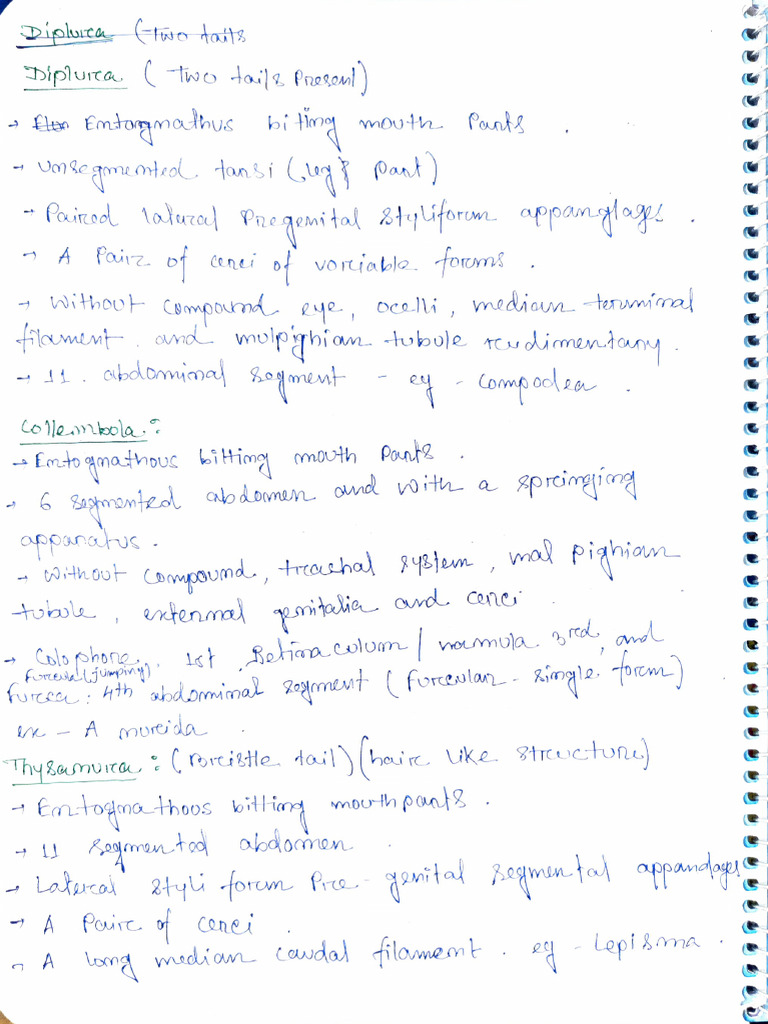 Diplura (Two tails
Diplura (Two tails Present)
→ Entongmathus biting mouth Parts .
→ unsegmented tarsi (leg's part)
→ Paired lateral Pregenital styliform appanglages .
→ A Pair of cerci of voriable forms .
→ without compound eye, ocelli, median terminal
filament. and mulpighian tubule rudimentary.
→ 11. abdominal segment - eg - compodea .
Collembola :
→ Entogmathous bitting mouth Parts .
→ 6 segmented abdomen and with a springing
apparatus .
→ without compound, treachal system, mal pighian
tubule, external genitalia and cerci
→ Colophore . 1st . Retinaculum / hamula 3rd, and
Furcula (jumping)
Furca : 4th abdominal segment (Furcular - single form)
ex - A mureida .
Thysanura : (rorcistle tail) (hair like structure)
→ Entogmathoos bitting mouthparts .
→ 11 segmented abdomen .
→ Lateral styli form Pre - genital segmental appandages
→ A Pair of cerci .
→ A long median caudal filament . eg - Lepisma .